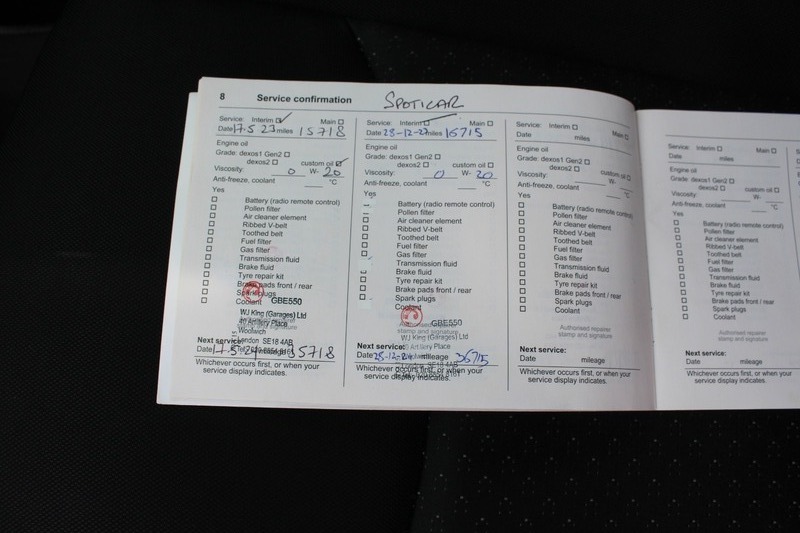 8 Service confirmation SPOTICAR
Service: Interim Main
Date 17.5 23 miles 15718
Engine oil
Grade: dexos1 Gen2
dexos2 custom oil
Viscosity: 0 W- 20
Anti-freeze, coolant °C
Yes
Battery (radio remote control)
Pollen filter
Air cleaner element
Ribbed V-belt
Toothed belt
Fuel filter
Gas filter
Transmission fluid
Brake fluid
Tyre repair kit
Brake pads front / rear
Spark plugs
Coolant
GBE550
WJ King (Garages) Ltd
Artillery Place
Woolwich
London SE18 4AB
Next service:
Date 17.5.24 35718
Whichever occurs first, or when your
service display indicates.
Service: Interim Main
Date 28-12-23 miles 16715
Engine oil
Grade: dexos1 Gen2
dexos2 custom oil
Viscosity: 0 W- 20
Anti-freeze, coolant °C
Yes
Battery (radio remote control)
Pollen filter
Air cleaner element
Ribbed V-belt
Toothed belt
Fuel filter
Gas filter
Transmission fluid
Brake fluid
Tyre repair kit
Brake pads front / rear
Spark plugs
Coolant
GBE550
WJ King (Garages) Ltd
Artillery Place
Next service:
Date 28-12-24 mileage 36715
Whichever occurs first, or when your
service display indicates.
Service: Interim Main
Date miles
Engine oil
Grade: dexos1 Gen2
dexos2 custom oil
Viscosity: W-
Anti-freeze, coolant °C
Yes
Battery (radio remote control)
Pollen filter
Air cleaner element
Ribbed V-belt
Toothed belt
Fuel filter
Gas filter
Transmission fluid
Brake fluid
Tyre repair kit
Brake pads front / rear
Spark plugs
Coolant
Authorised repairer
stamp and signature
Next service:
Date mileage
Whichever occurs first, or when your
service display indicates.
Service: Interim Main
Date miles
Engine oil
Grade: dexos1 Gen2
dexos2 custom oil
Viscosity: W-
Anti-freeze, coolant °C
Yes
Battery (radio remote control)
Pollen filter
Air cleaner element
Ribbed V-belt
Toothed belt
Fuel filter
Gas filter
Transmission fluid
Brake fluid
Tyre repair kit
Brake pads front / rear
Spark plugs
Coolant
Authorised repairer
stamp and signature
Next service:
Date mileage
Whichever occurs first, or when your
service display indicates.